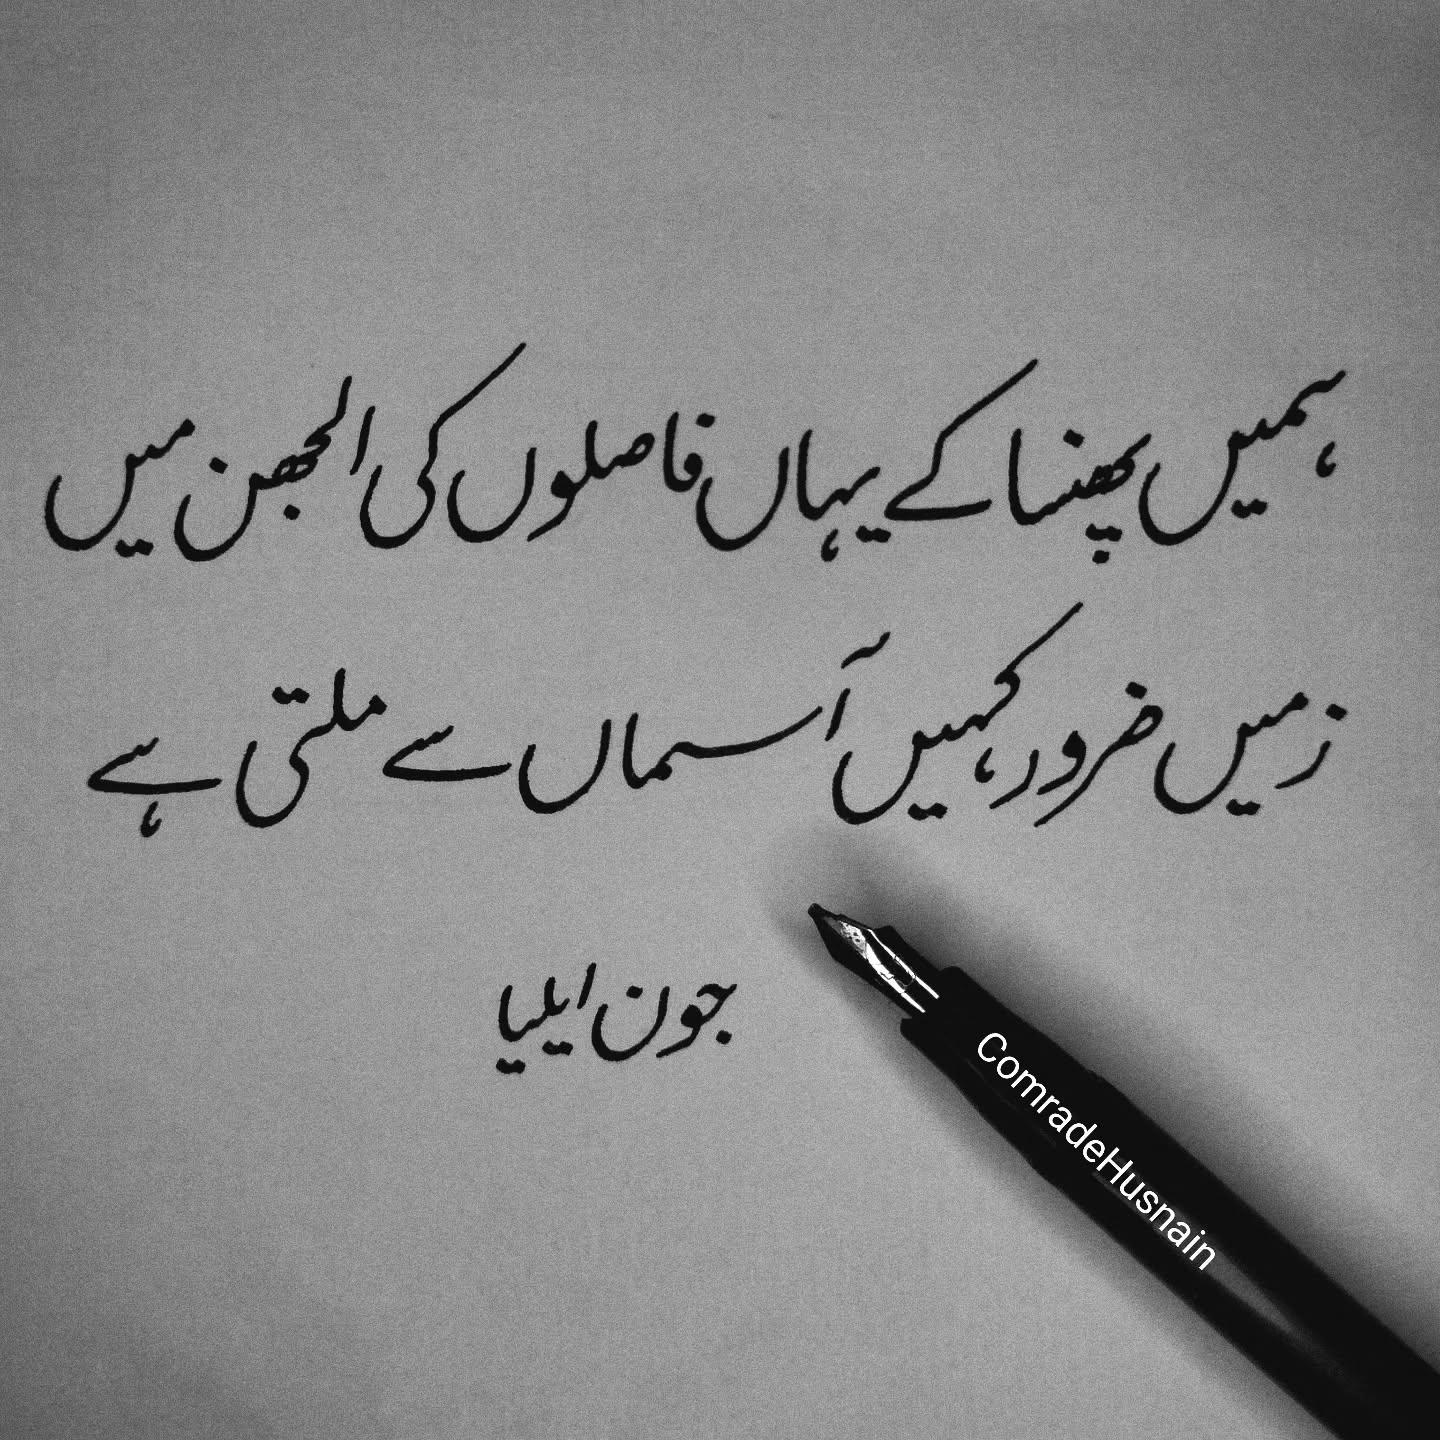 ہمیں پھنسا کے یہاں فاصلوں کی الجھن میں
زمیں ضرور کہیں آسماں سے ملتی ہے
جون ایلیا
ComradeHusnain